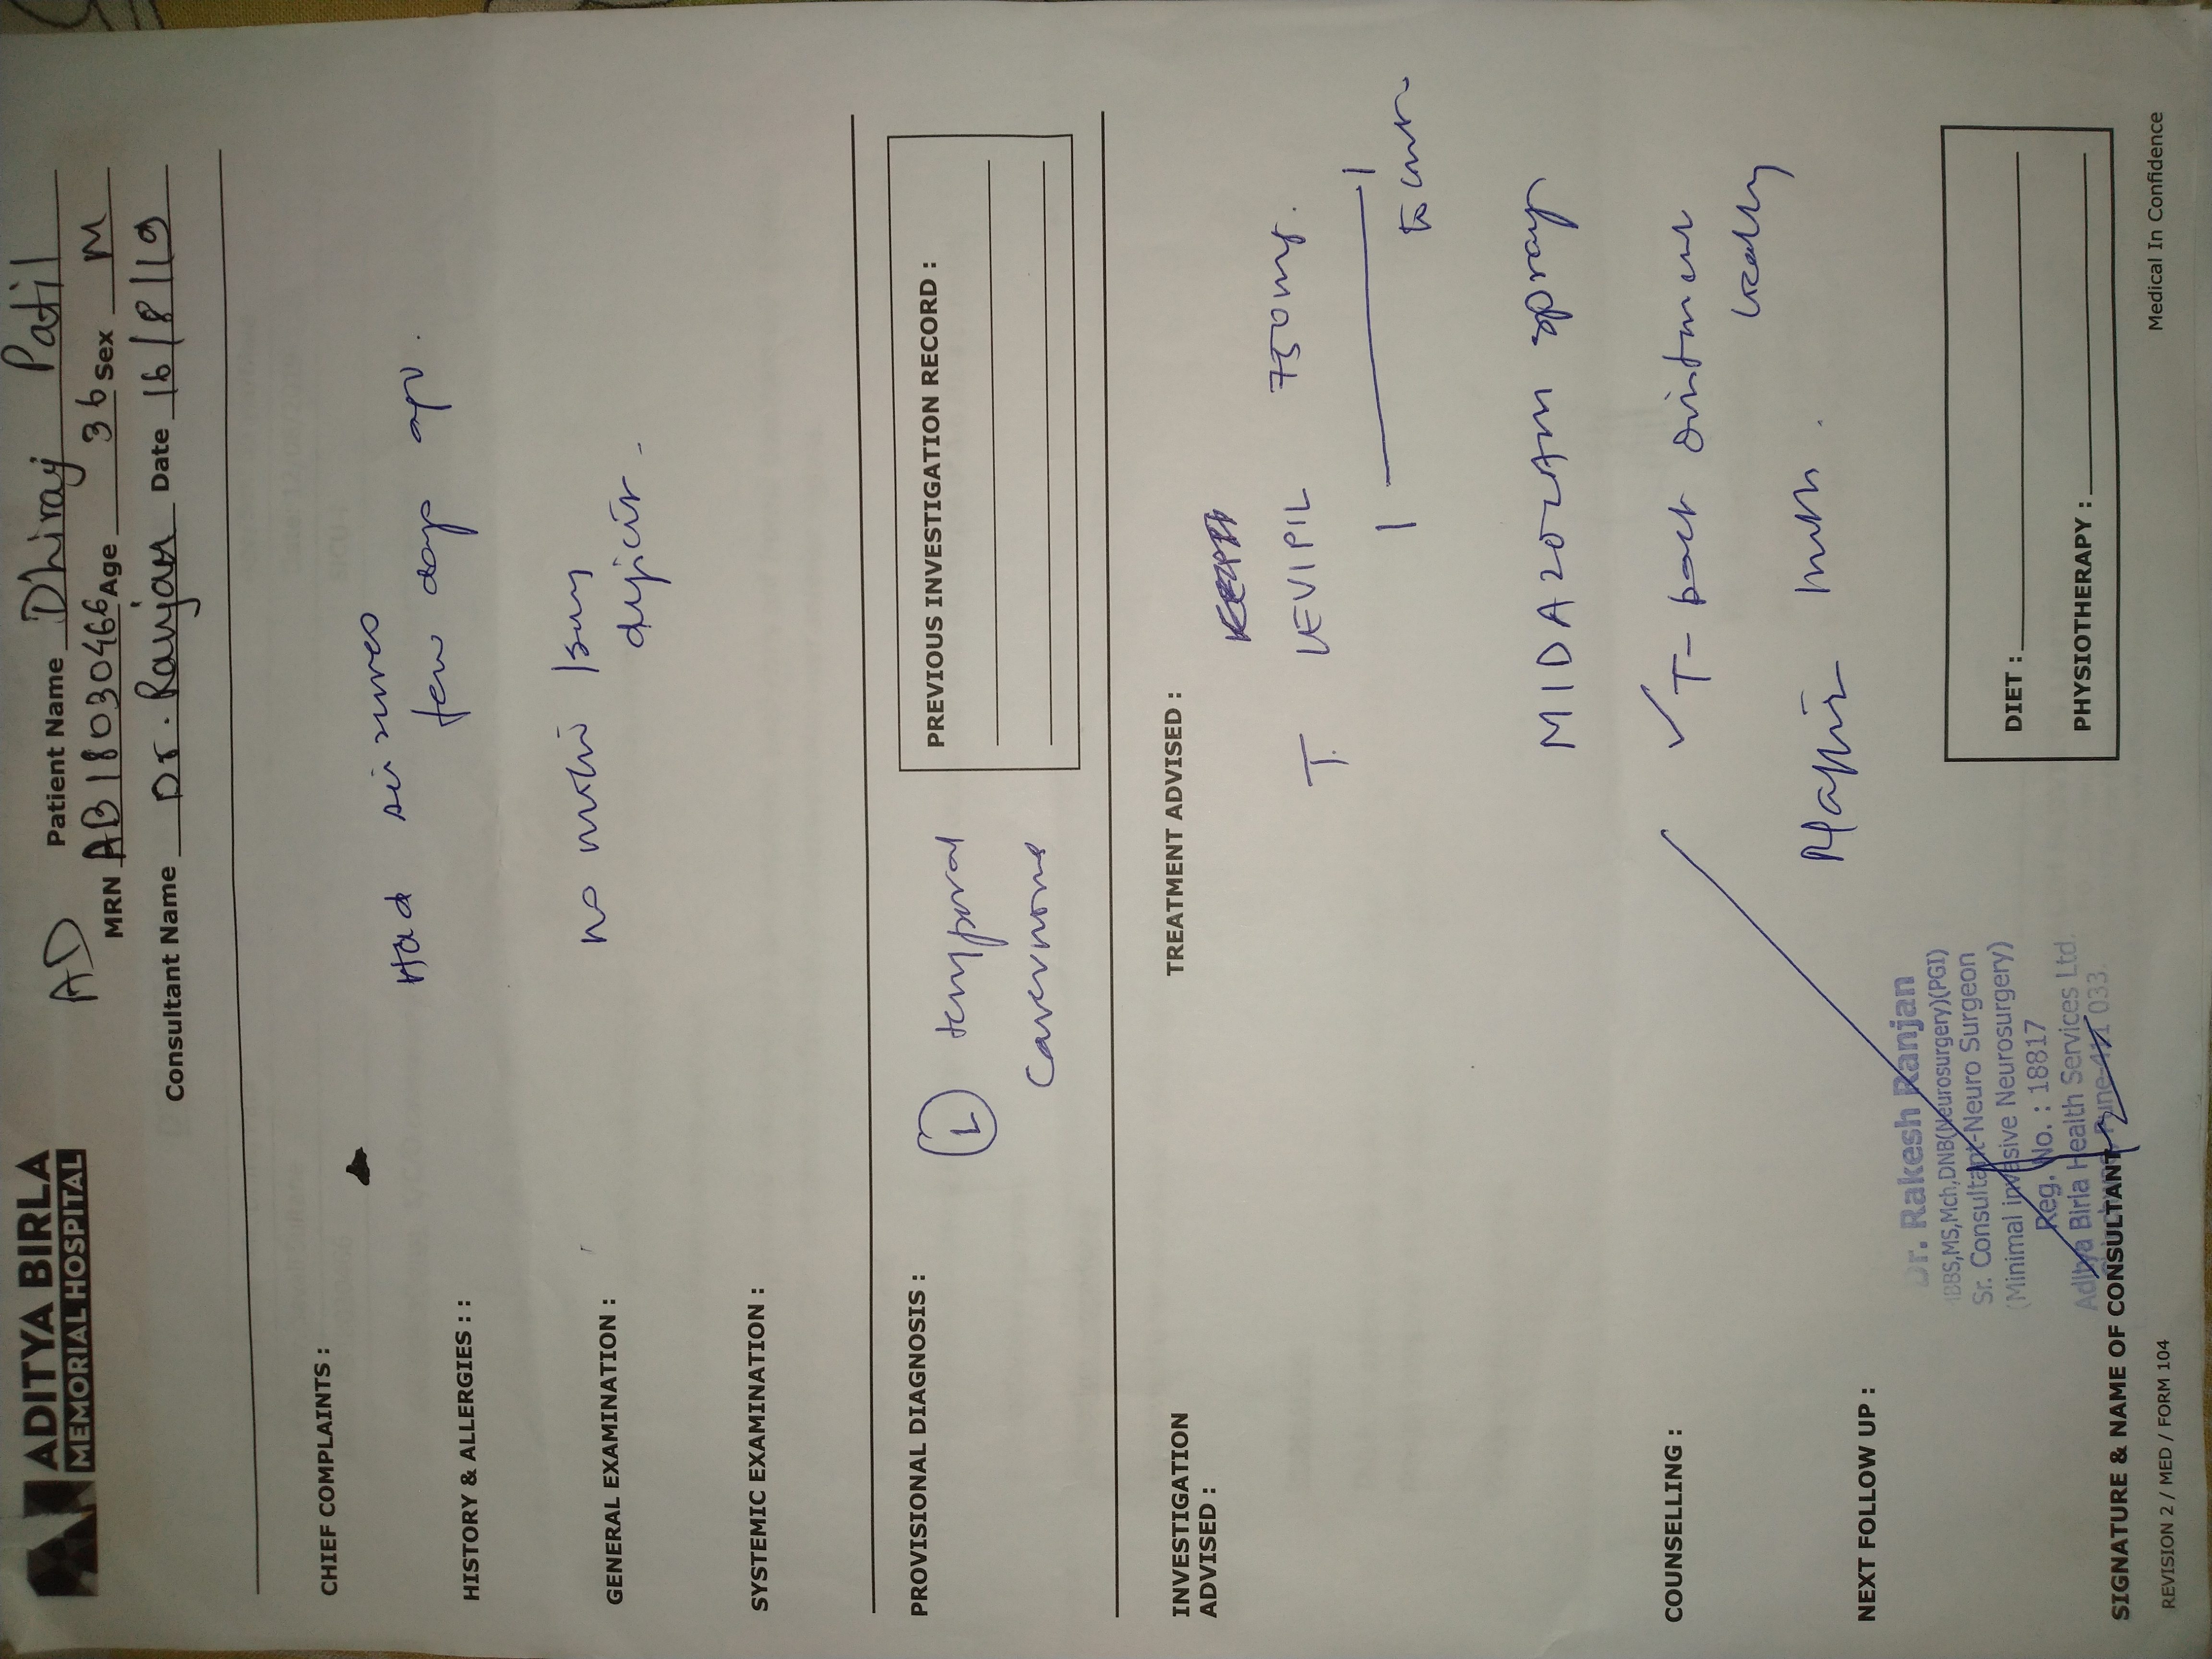 ADITYA BIRLA
MEMORIAL HOSPITAL
AD
Patient Name Dhiraj Patil
MRN AB18030466 Age 36 Sex M
Consultant Name Dr. Ranjan Date 16/8/19
CHIEF COMPLAINTS :
Had seizures
few days ago.
HISTORY & ALLERGIES : :
GENERAL EXAMINATION :
deficit -
SYSTEMIC EXAMINATION :
PROVISIONAL DIAGNOSIS :
L temporal
Cavernoma
PREVIOUS INVESTIGATION RECORD :
INVESTIGATION
ADVISED :
TREATMENT ADVISED :
T. LEVIPIL 750mg.
1 — 1
to cont
MIDAZOLAM spray
✓ T-bact ointment
locally
COUNSELLING :
NEXT FOLLOW UP :
Dr. Rakesh Ranjan
MBBS,MS,Mch,DNB(Neurosurgery)(PGI)
Sr. Consultant-Neuro Surgeon
(Minimal invasive Neurosurgery)
Reg. No. : 18817
Aditya Birla Health Services Ltd.
Pune-411 033.
DIET :
PHYSIOTHERAPY :
SIGNATURE & NAME OF CONSULTANT
REVISION 2 / MED / FORM 104
Medical In Confidence